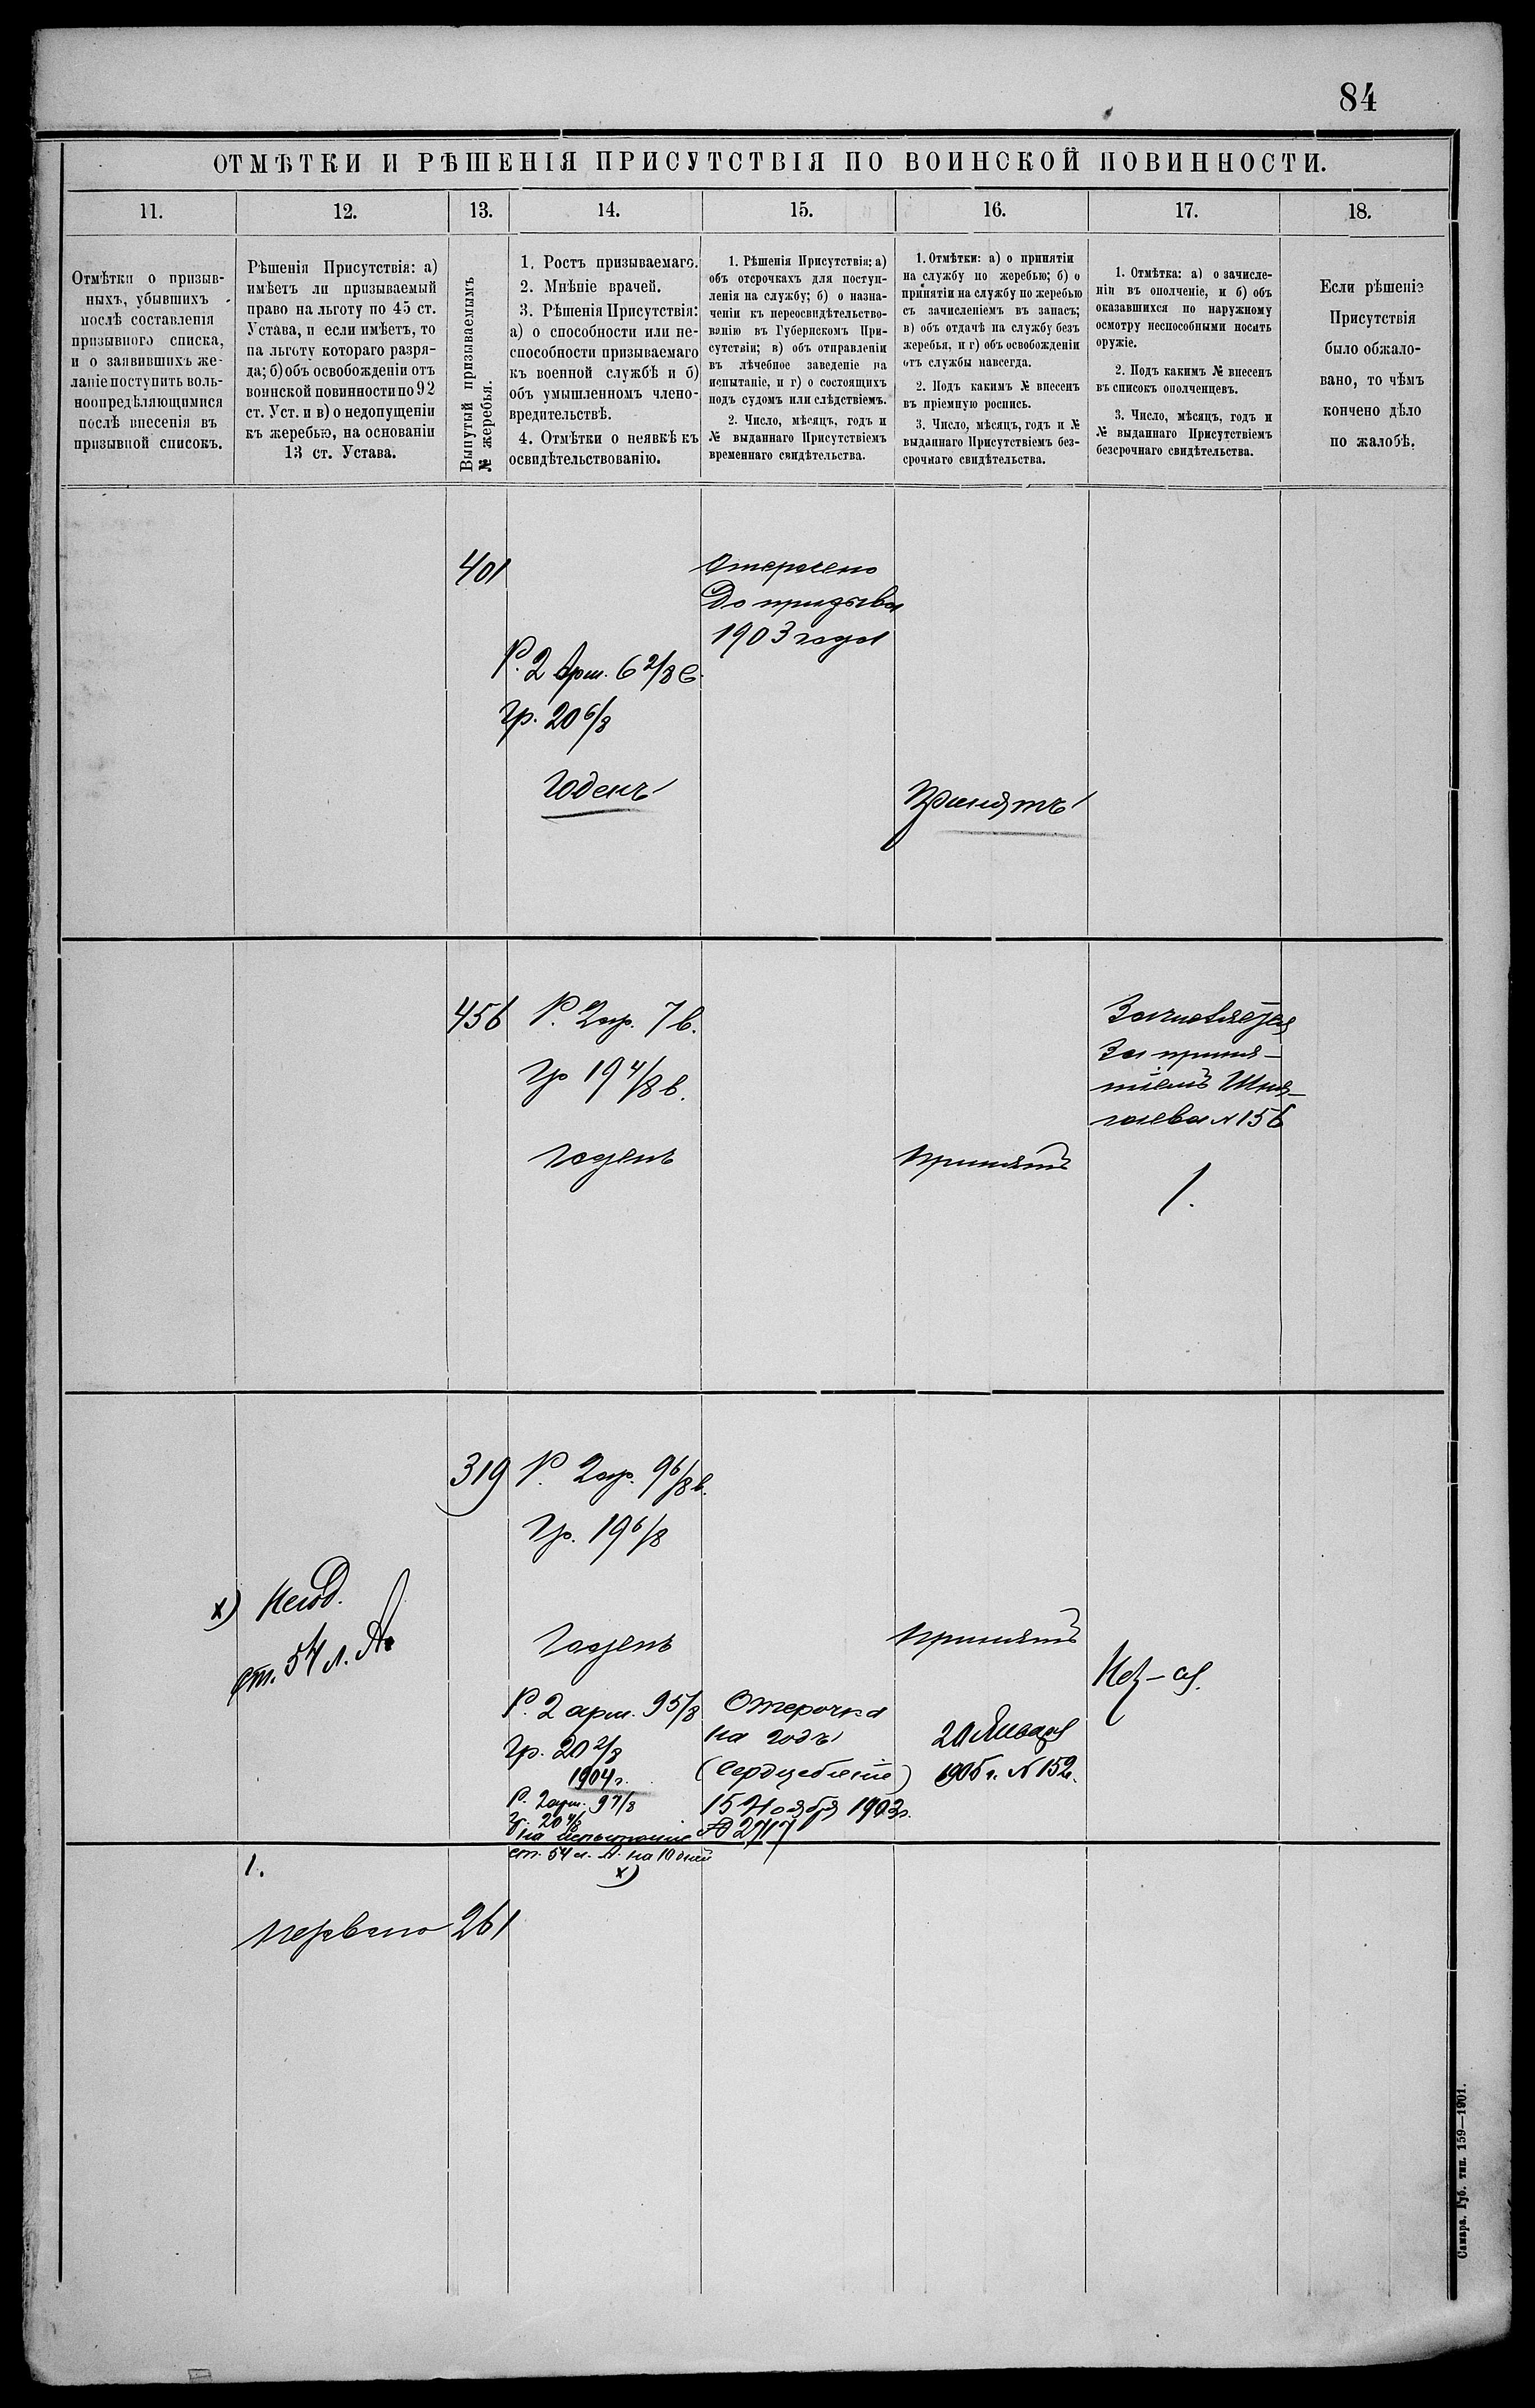 84
ОТМѢТКИ И РѢШЕНІЯ ПРИСУТСТВІЯ ПО ВОИНСКОЙ ПОВИННОСТИ.
11.
12.
13.
14.
15.
16.
17.
18.
Отмѣтки о призыв-
ныхъ, убывшихъ
послѣ составленія
призывного списка,
и о заявившихъ же-
ланіе поступить воль-
ноопредѣляющимися
послѣ внесенія въ
призывной списокъ.
Рѣшенія Присутствія: а)
имѣетъ ли призываемый
право на льготу по 45 ст.
Устава, и если имѣетъ, то
на льготу котораго разря-
да; б) объ освобожденіи отъ
воинской повинности по 92
ст. Уст. и в) о недопущеніи
къ жеребью, на основаніи
13 ст. Устава.
Вынутый призываемымъ
№ жеребья.
1. Ростъ призываемаго.
2. Мнѣніе врачей.
3. Рѣшенія Присутствія:
а) о способности или не-
способности призываемаго
къ военной службѣ и б)
объ умышленномъ члено-
вредительствѣ.
4. Отмѣтки о неявкѣ къ
освидѣтельствованію.
1. Рѣшенія Присутствія: а)
объ отсрочкахъ для поступ-
ленія на службу; б) о назна-
ченіи къ переосвидѣтельство-
ванію въ Губернскомъ При-
сутствіи; в) объ отправленіи
въ лѣчебное заведеніе на
испытаніе, и г) о состоящихъ
подъ судомъ или слѣдствіемъ.
2. Число, мѣсяцъ, годъ и
№ выданнаго Присутствіемъ
временнаго свидѣтельства.
1. Отмѣтки: а) о принятіи
на службу по жеребью; б) о
принятіи на службу по жеребью
съ зачисленіемъ въ запасъ;
в) объ отдачѣ на службу безъ
жеребья, и г) объ освобожденіи
отъ службы навсегда.
2. Подъ какимъ № внесенъ
въ пріемную роспись.
3. Число, мѣсяцъ, годъ и №
выданнаго Присутствіемъ без-
срочнаго свидѣтельства.
1. Отмѣтка: а) о зачисле-
ніи въ ополченіе, и б) объ
оказавшихся по наружному
осмотру неспособными носить
оружіе.
2. Подъ какимъ № внесенъ
въ списокъ ополченцевъ.
3. Число, мѣсяцъ, годъ и
№ выданнаго Присутствіемъ
безсрочнаго свидѣтельства.
Если рѣшеніе
Присутствія
было обжало-
вано, то чѣмъ
кончено дѣло
по жалобѣ.
401
Отсрочено
до призыва
1903 года
Р. 2 арш. 6 2/8 в.
Гр. 20 6/8
Годенъ
Принятъ
456
Р. 2 ар. 7 в.
Гр 19 4/8 в.
годенъ
принятъ
за приня-
тіемъ
№ 156
1.
319
Р. 2 ар. 9 6/8 в.
Гр. 19 6/8
х) Негод.
ст. 54 л. А.
годенъ
принятъ
Р. 2 арш. 9 5/8
Гр. 20 2/8
1904 г.
Р. 2 арш. 9 7/8
Гр. 20 4/8
на испытаніе
ст. 54 л. А. на 10 дней
х)
Отсрочка
на годъ
(сердцебіеніе)
15 Ноября 1903 г.
№ 2717
20 Января
1905 г. № 152.
1.
перваго
261
Самара. Губ. тип. 159—1901.